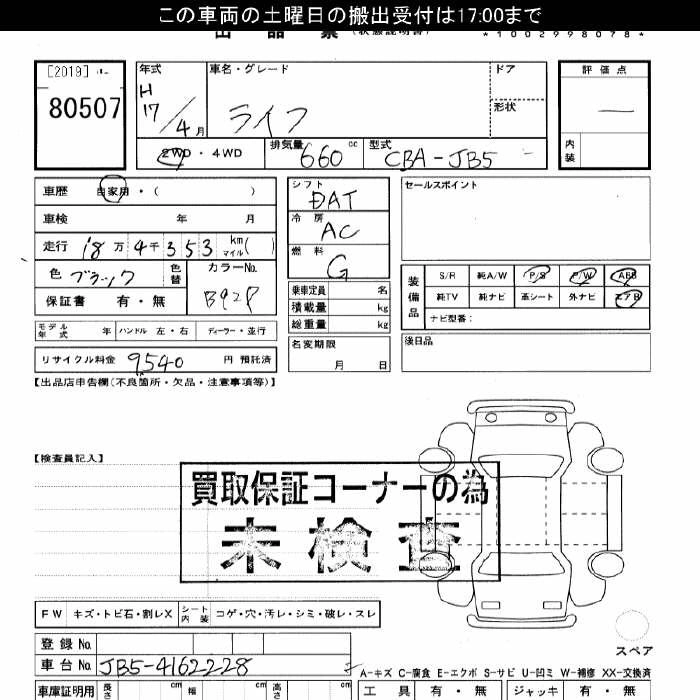 この車両の土曜日の搬出受付は17:00まで
出品票(状態説明書) *1002998078*
[2019]
80507
年式 H17/4月
車名・グレード ライフ
ドア
形状
評価点 —
内装
2WD・4WD
排気量 660cc
型式 CBA-JB5
車歴 自家用・( )
車検 年 月
走行 18万4千353 km マイル( )
色 ブラック 色替
カラーNo. B92P
保証書 有・無
モデル年式 年 ハンドル 左・右 ディーラー・並行
リサイクル料金 9540 円 預託済
シフト DAT
冷房 AC
燃料 G
乗車定員 名
積載量 kg
総重量 kg
名変期限 月 日
セールスポイント
装備品
S/R 純A/W P/S P/W ABS
純TV 純ナビ 革シート 外ナビ エアB
ナビ型番:
後日品
【出品店申告欄(不良箇所・欠品・注意事項等)】
【検査員記入】
買取保証コーナーの為
未検査
FW キズ・トビ石・割レX シート内装 コゲ・穴・汚レ・シミ・破レ・スレ
登録No.
車台No. JB5-4162228
スペア
A-キズ C-腐食 E-エクボ S-サビ U-凹ミ W-補修 XX-交換済
車庫証明用 長さ cm 幅 cm 高さ cm
工具 有・無 ジャッキ 有・無